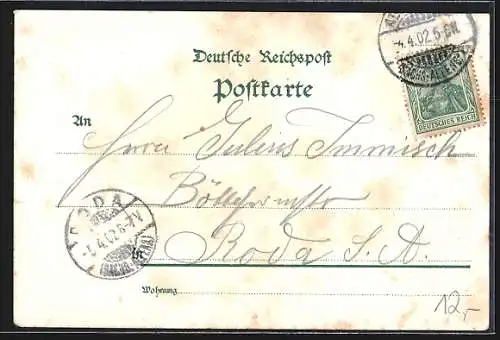 4.4.02.5-6N.
Deutsche Reichspost
Postkarte
DEUTSCHES REICH
An
Herrn Julius Immisch
Böttchermstr
RODA
5.4.02.6-7V
in Roda S. A.
Wohnung
12,-